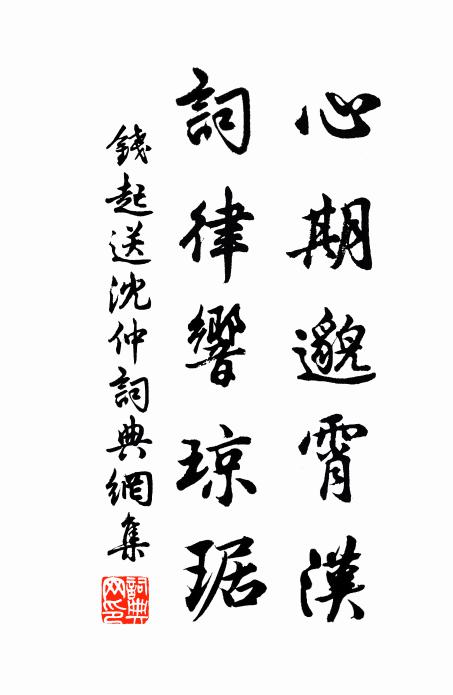 心期邈霄漢
詞律響琼琚
錢起送沈仲詞典網集
詞典網印